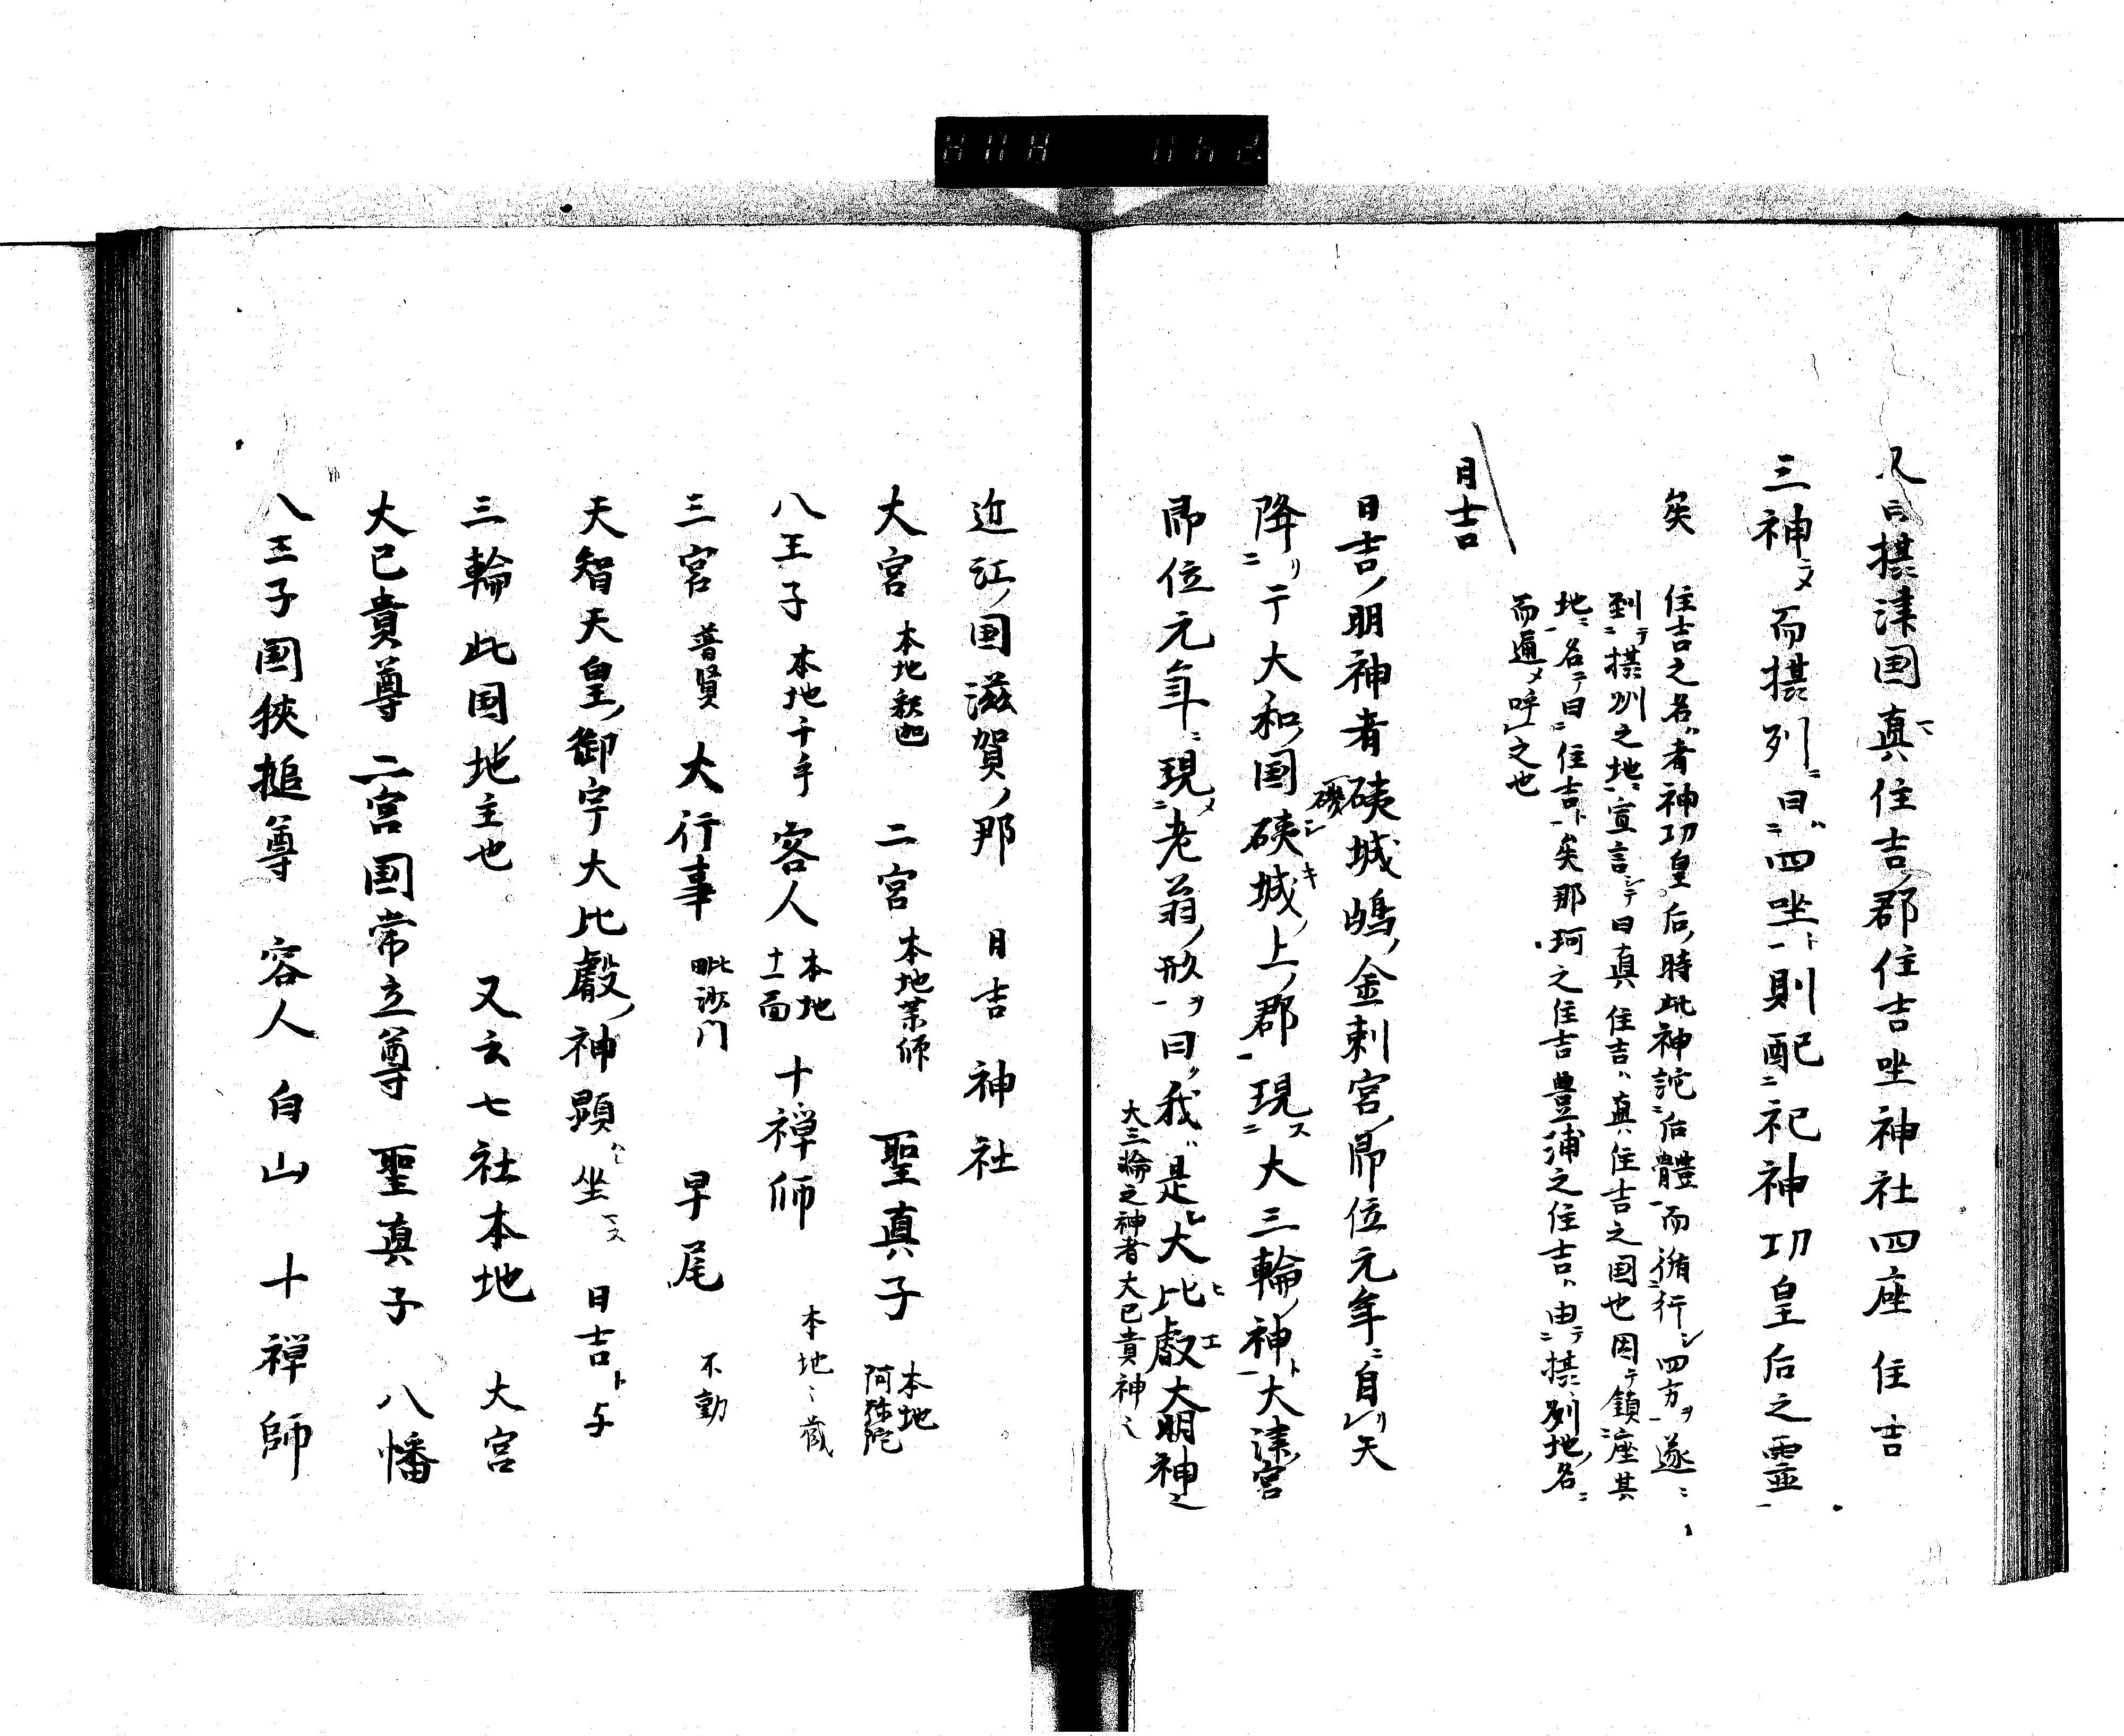 又曰摂津国真住吉郡住吉坐神社四座住吉
三神ヲ而摂列ニ曰四坐ト則配祀神功皇后之霊
矣 住吉之名者神功皇后時此神詫后體而循行四方ヲ遂ニ
到テ摂州之地宣言シテ曰真住吉真住吉之国也因テ鎮座其
地名テ曰住吉ト矣那珂之住吉豊浦之住吉ハ由テ摂列地名ニ
而遍ク呼之也
日吉
日吉ノ明神者磯城嶋ノ金刺宮ノ即位元年ニ自リ天
降リテ于大和国磯城ノ上ノ郡現ス大三輪ノ神ト大津宮
即位元年ニ現老翁ノ形ヲ曰我ハ是大比叡大明神也
大三輪之神者大己貴神也
近江国滋賀ノ郡 日吉神社
大宮 本地釈迦 二宮 本地薬師 聖真子 本地阿弥陀
八王子 本地千手 客人 本地十一面 十禅師 本地地蔵
三宮 普賢 大行事 毗沙門 早尾 不動
天智天皇ノ御宇大比叡ノ神顕坐ス日吉ト与
三輪此国地主也 又云七社本地 大宮
大已貴尊 二宮国常立尊 聖真子 八幡
八王子国狹槌尊 客人 白山 十禅師